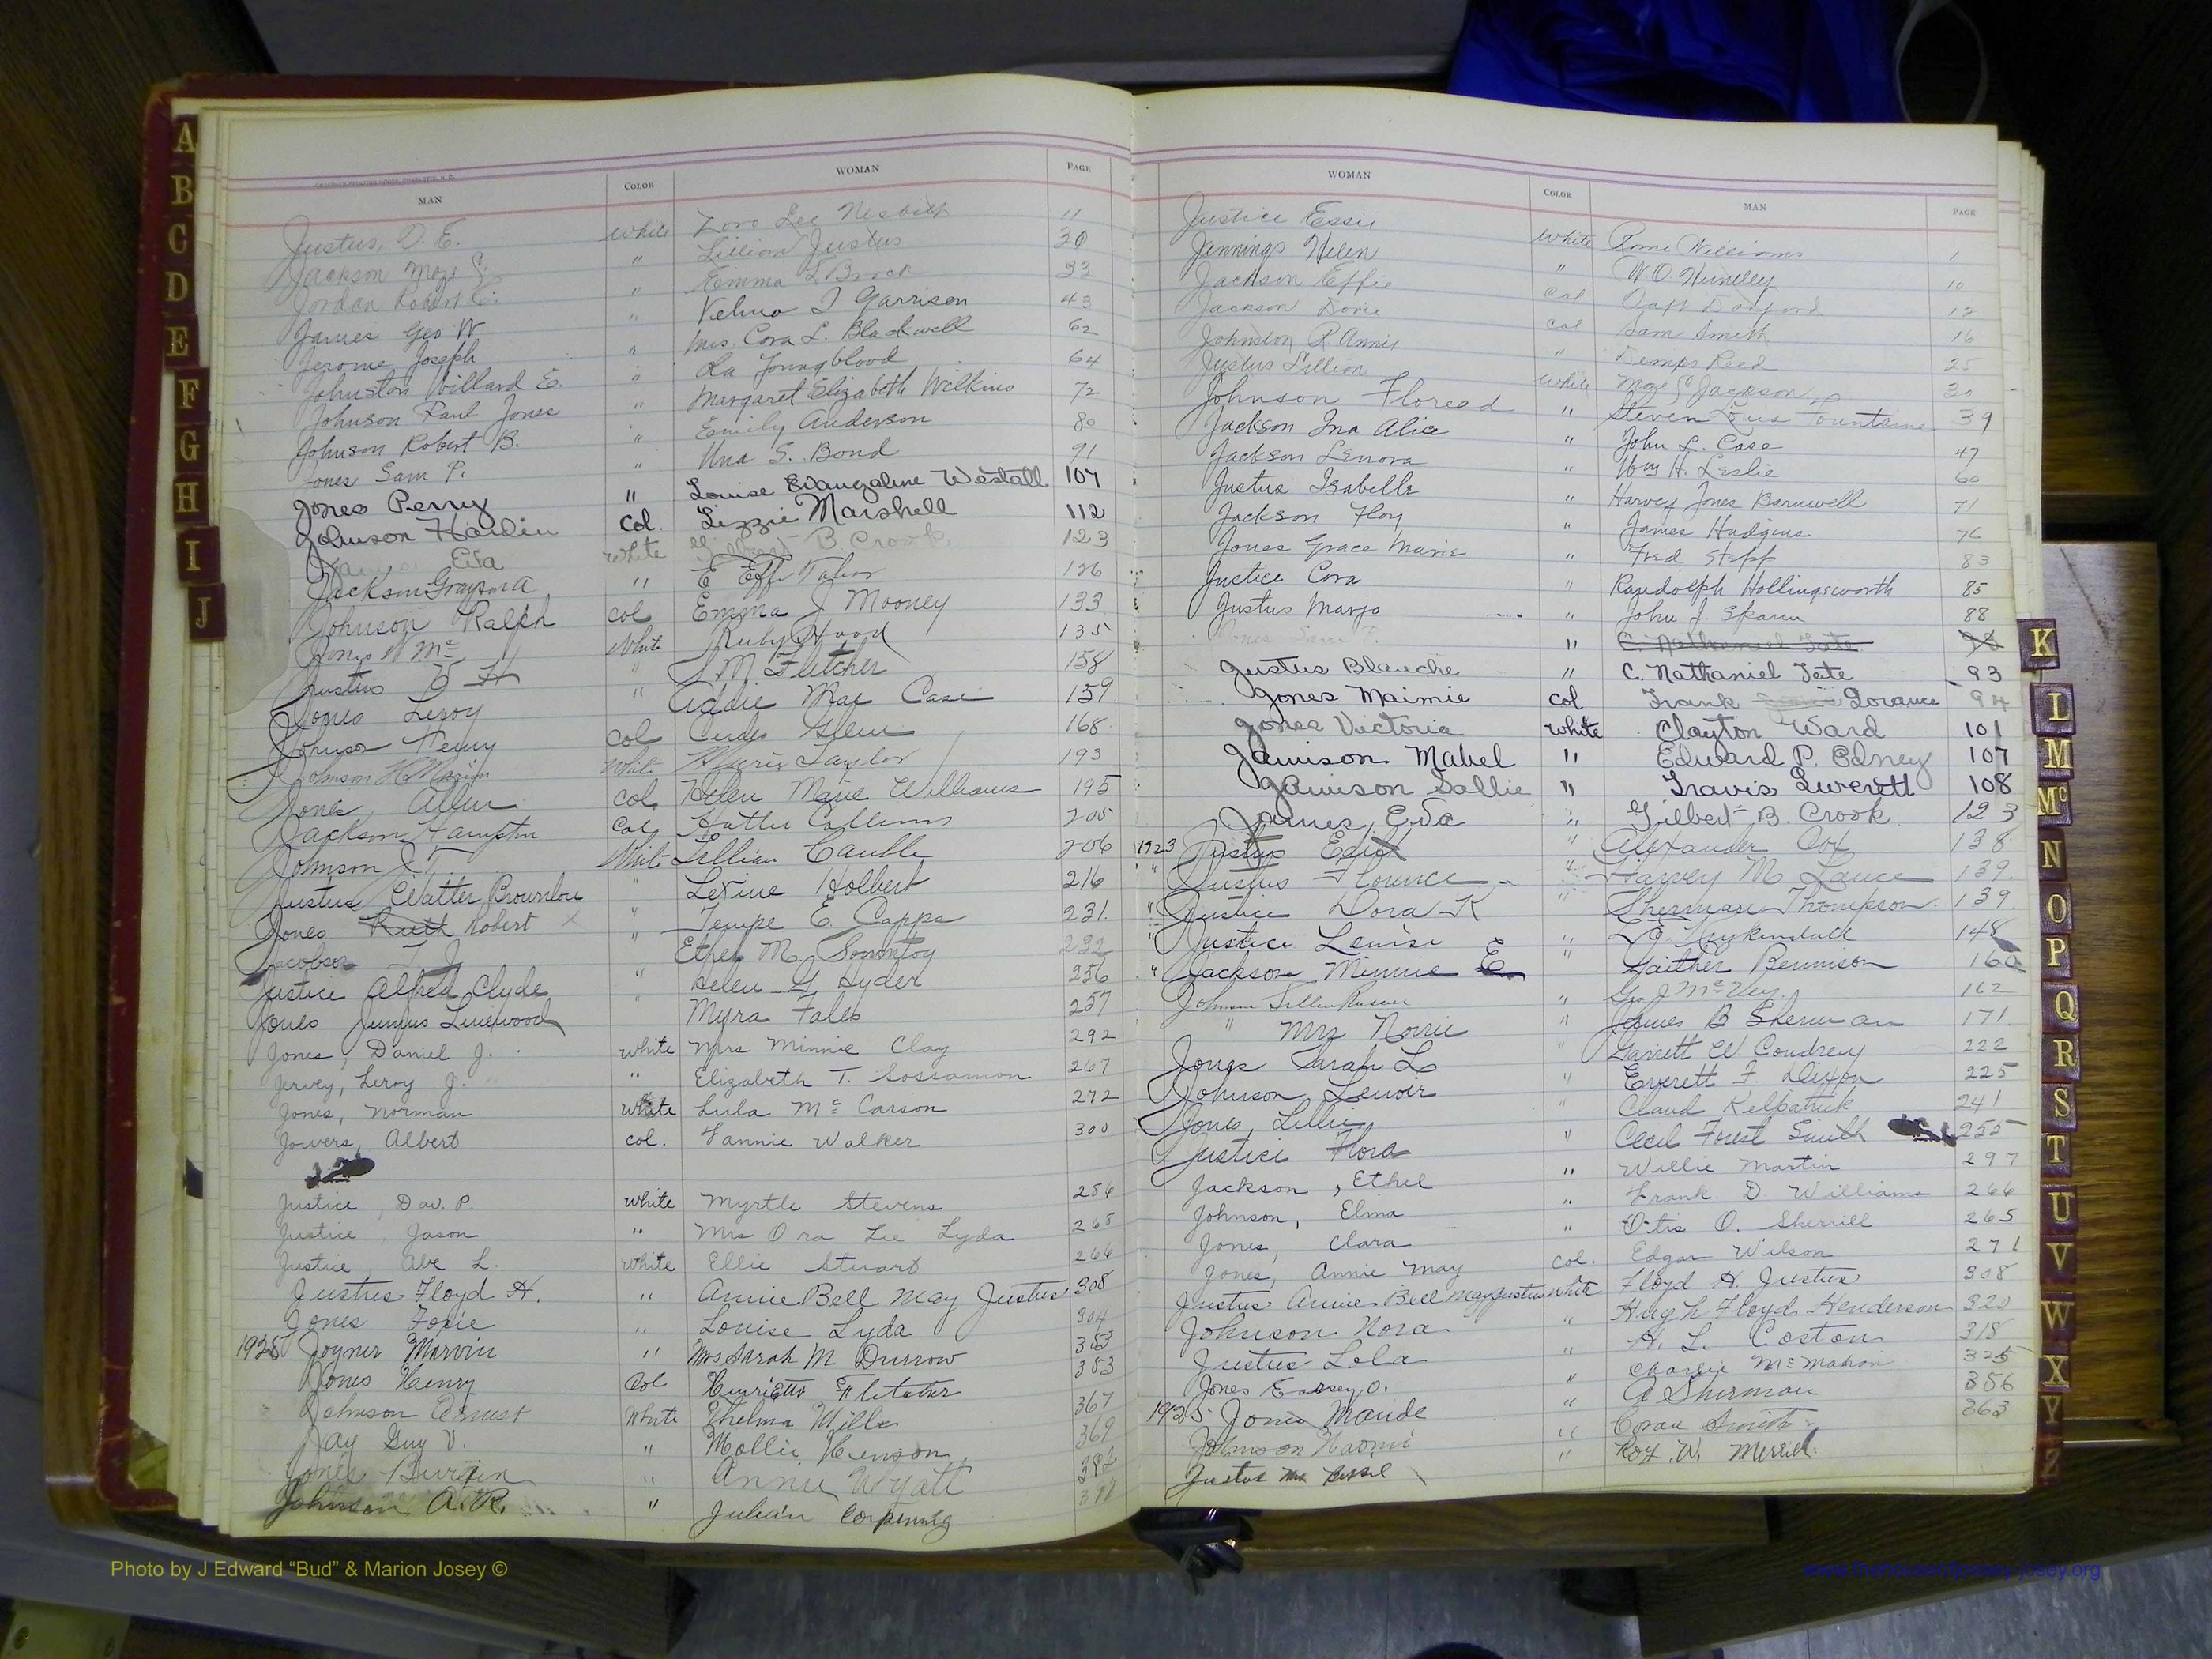 MAN COLOR WOMAN PAGE
Justus, D. E. White Zora Lee Nesbith 11
Jackson Moze S. " Lillian Justus 30
Jordan Robert C. " Emma L Brock 33
James Geo W " Velma I Garrison 43
Jerome Joseph " Mrs. Cora L. Blackwell 62
Johnston Willard E. " La Youngblood 64
Johnson Paul Jones " Margaret Elizabeth Wilkins 72
Johnson Robert B. " Emily Anderson 80
Jones Sam P. " Una S. Bond 91
Jones Perry " Louise Evangaline Westall 107
Johnson Hardin Col. Lizzie Marshell 112
Eva White Gilbert B. Crook 123
Jackson Grayson A " Effi Tabor 126
Johnson Ralph col Emma J Mooney 133
Jones W Mc White Ruby Hood 135
Justus " J. M. Fletcher 158
Jones Leroy " Addie Mae Case 159
Johnson Perry col Glenn 168
Johnson H Marion White Marie Taylor 193
Jones Allen Col Helen Marie Williams 195
Jackson Hampton Col Hattie Collins 205
Johnson J T White Lillian Cauble 206
Justus Walter Brownlow " Levine Holbert 216
Jones Ruth Robert " Tempe E. Capps 231
Jacobson T. J " Ethel M. 232
Justice Alfred Clyde " Helen G Hyder 256
Jones Junius Linewood " Myra Fales 257
Jones, Daniel J. White Mrs Minnie Clay 292
Jervey, Leroy J. " Elizabeth T. Sossamon 267
Jones, Norman White Lula Mc Carson 272
Jowers, Albert col. Fannie Walker 300
Justice, Dav. P. White Myrtle Stevens 256
Justice, Jason " Mrs Ora Lee Lyda 265
Justice, Abe L. White Ellie Stuart 266
Justus Floyd H. " Annie Bell May Justus 308
Jones Foxie " Louise Lyda 304
1925 Joyner Marvin " Mrs Sarah M Durrow 353
Jones Henry Col Henrietta Fletcher 353
Johnson Ernest White Thelma Mills 367
Jay Guy V. " Mollie Henson 369
Jones " Annie Wyatt 382
Johnson A. R. " Julian Corpening
WOMAN COLOR MAN PAGE
Justice Essie White Rome Williams 1
Jennings Helen " W O Huntley 10
Jackson Effie Col 12
Jackson Dovie Col Sam Smith 16
Johnston R Annie " Demps Reed 25
Justus Lillian White Moze S Jackson 30
Johnson Floread " Steven Louis Fountaine 39
Jackson Ina Alice " John L. Case 47
Jackson Lenora " Wm H. Leslie 60
Justus Isabelle " Harvey Jones Barnwell 71
Jackson Floy " James Hudgins 76
Jones Grace Marie " Fred Stepp 83
Justice Cora " Randolph Hollingsworth 85
Justus Marjo " John J. Spann 88
Jones Sam P. " C. Nathaniel Tate
Justus Blanche " C. Nathaniel Tate 93
Jones Maimie Col Frank Lorance 94
Jones Victoria White Clayton Ward 101
Jamison Mabel " Edward P. Edney 107
Jamison Sallie " Travis Liverett 108
James, Eva " Gilbert B. Crook 123
1923 Justus " Alexander Cox 138
" Justus Florence " Harvey M Lance 139
" Justice Dora K " Sherman Thompson 139
" Justice Louise " Kuykendall 148
" Jackson Minnie E " Gaither Bennison 160
Johnson " Geo J McVey 162
" Mrs Norrie " James B Sherman 171
Jones Sarah L " Garrett W Coudrey 222
Johnson Lenoir " Everett F. Dixon 225
Jones, Lillie " Claud Kelpatrick 241
Justice Flora " Cecil Forest Smith 255
Jackson, Ethel " Willie Martin 297
Johnson, Elina " Frank D. Williams 266
Jones, Clara " Otis O. Sherrill 265
Jones, Annie May col. Edgar Wilson 271
Justus Annie Bell May Justus White Floyd H. Justus 308
Johnson Nora " Hugh Floyd Henderson 320
Justus Lola " H. L. Coston 318
Jones O. " Charlie McMahon 325
1925 Jones Maude " A Sherman 356
Johnson Naomi " Smith 363
Justus Mrs " Roy. W. Merrill
A
B
C
D
E
F
G
H
I
J
K
L
M
Mc
N
O
P
Q
R
S
T
U
V
W
X
Y
Z
Photo by J Edward “Bud” & Marion Josey ©
www.thehouseofjossey-josey.org